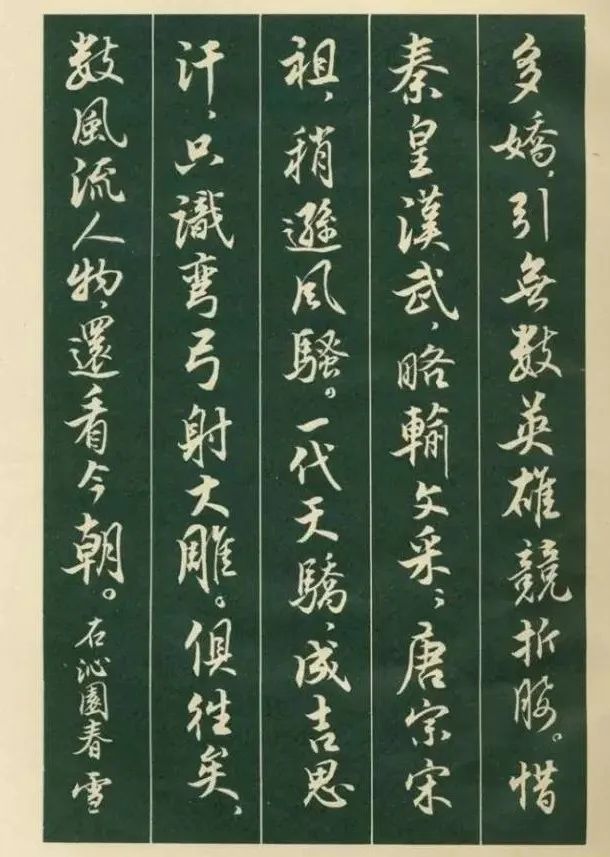 多嬌，引無數英雄競折腰。惜
秦皇漢武，略輸文采；唐宗宋
祖，稍遜风騷。一代天驕，成吉思
汗，只識弯弓射大雕。俱往矣，
數風流人物，還看今朝。右沁園春雪